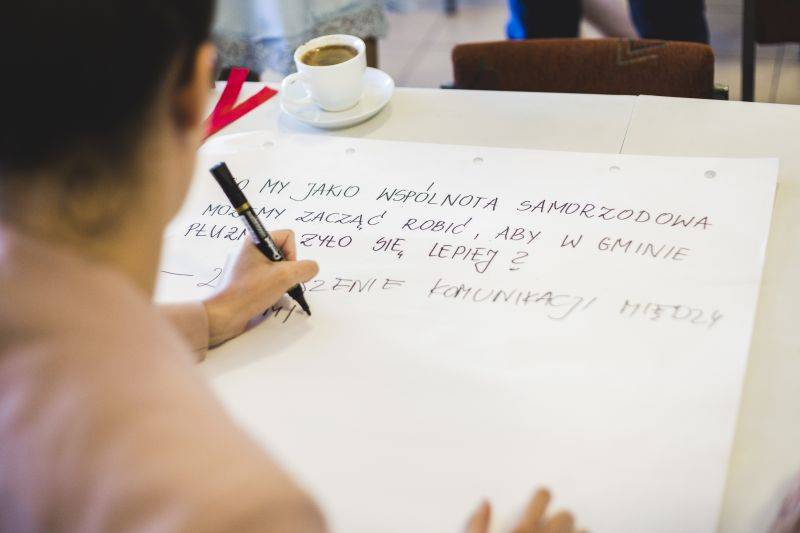 CO MY JAKO WSPÓLNOTA SAMORZODOWA
MOŻEMY ZACZĄĆ ROBIĆ, ABY W GMINIE
ŻYŁO SIĘ LEPIEJ?
KOMUNIKACJI MIĘDZY